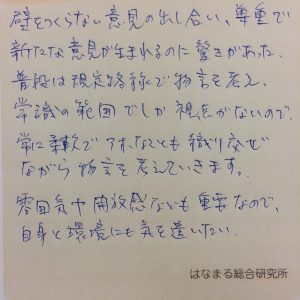 壁をつくらない意見の出し合い、尊重で
新たな意見が生まれるのに驚きがあった。
普段は規定路線で物言を考え、
常識の範囲でしか視点がないので、
常に柔軟で などとも織り交ぜ
ながら物言を考えていきます。
雰囲気や開放感なども重要なので、
自身と環境にも気を遣いたい。
はなまる総合研究所